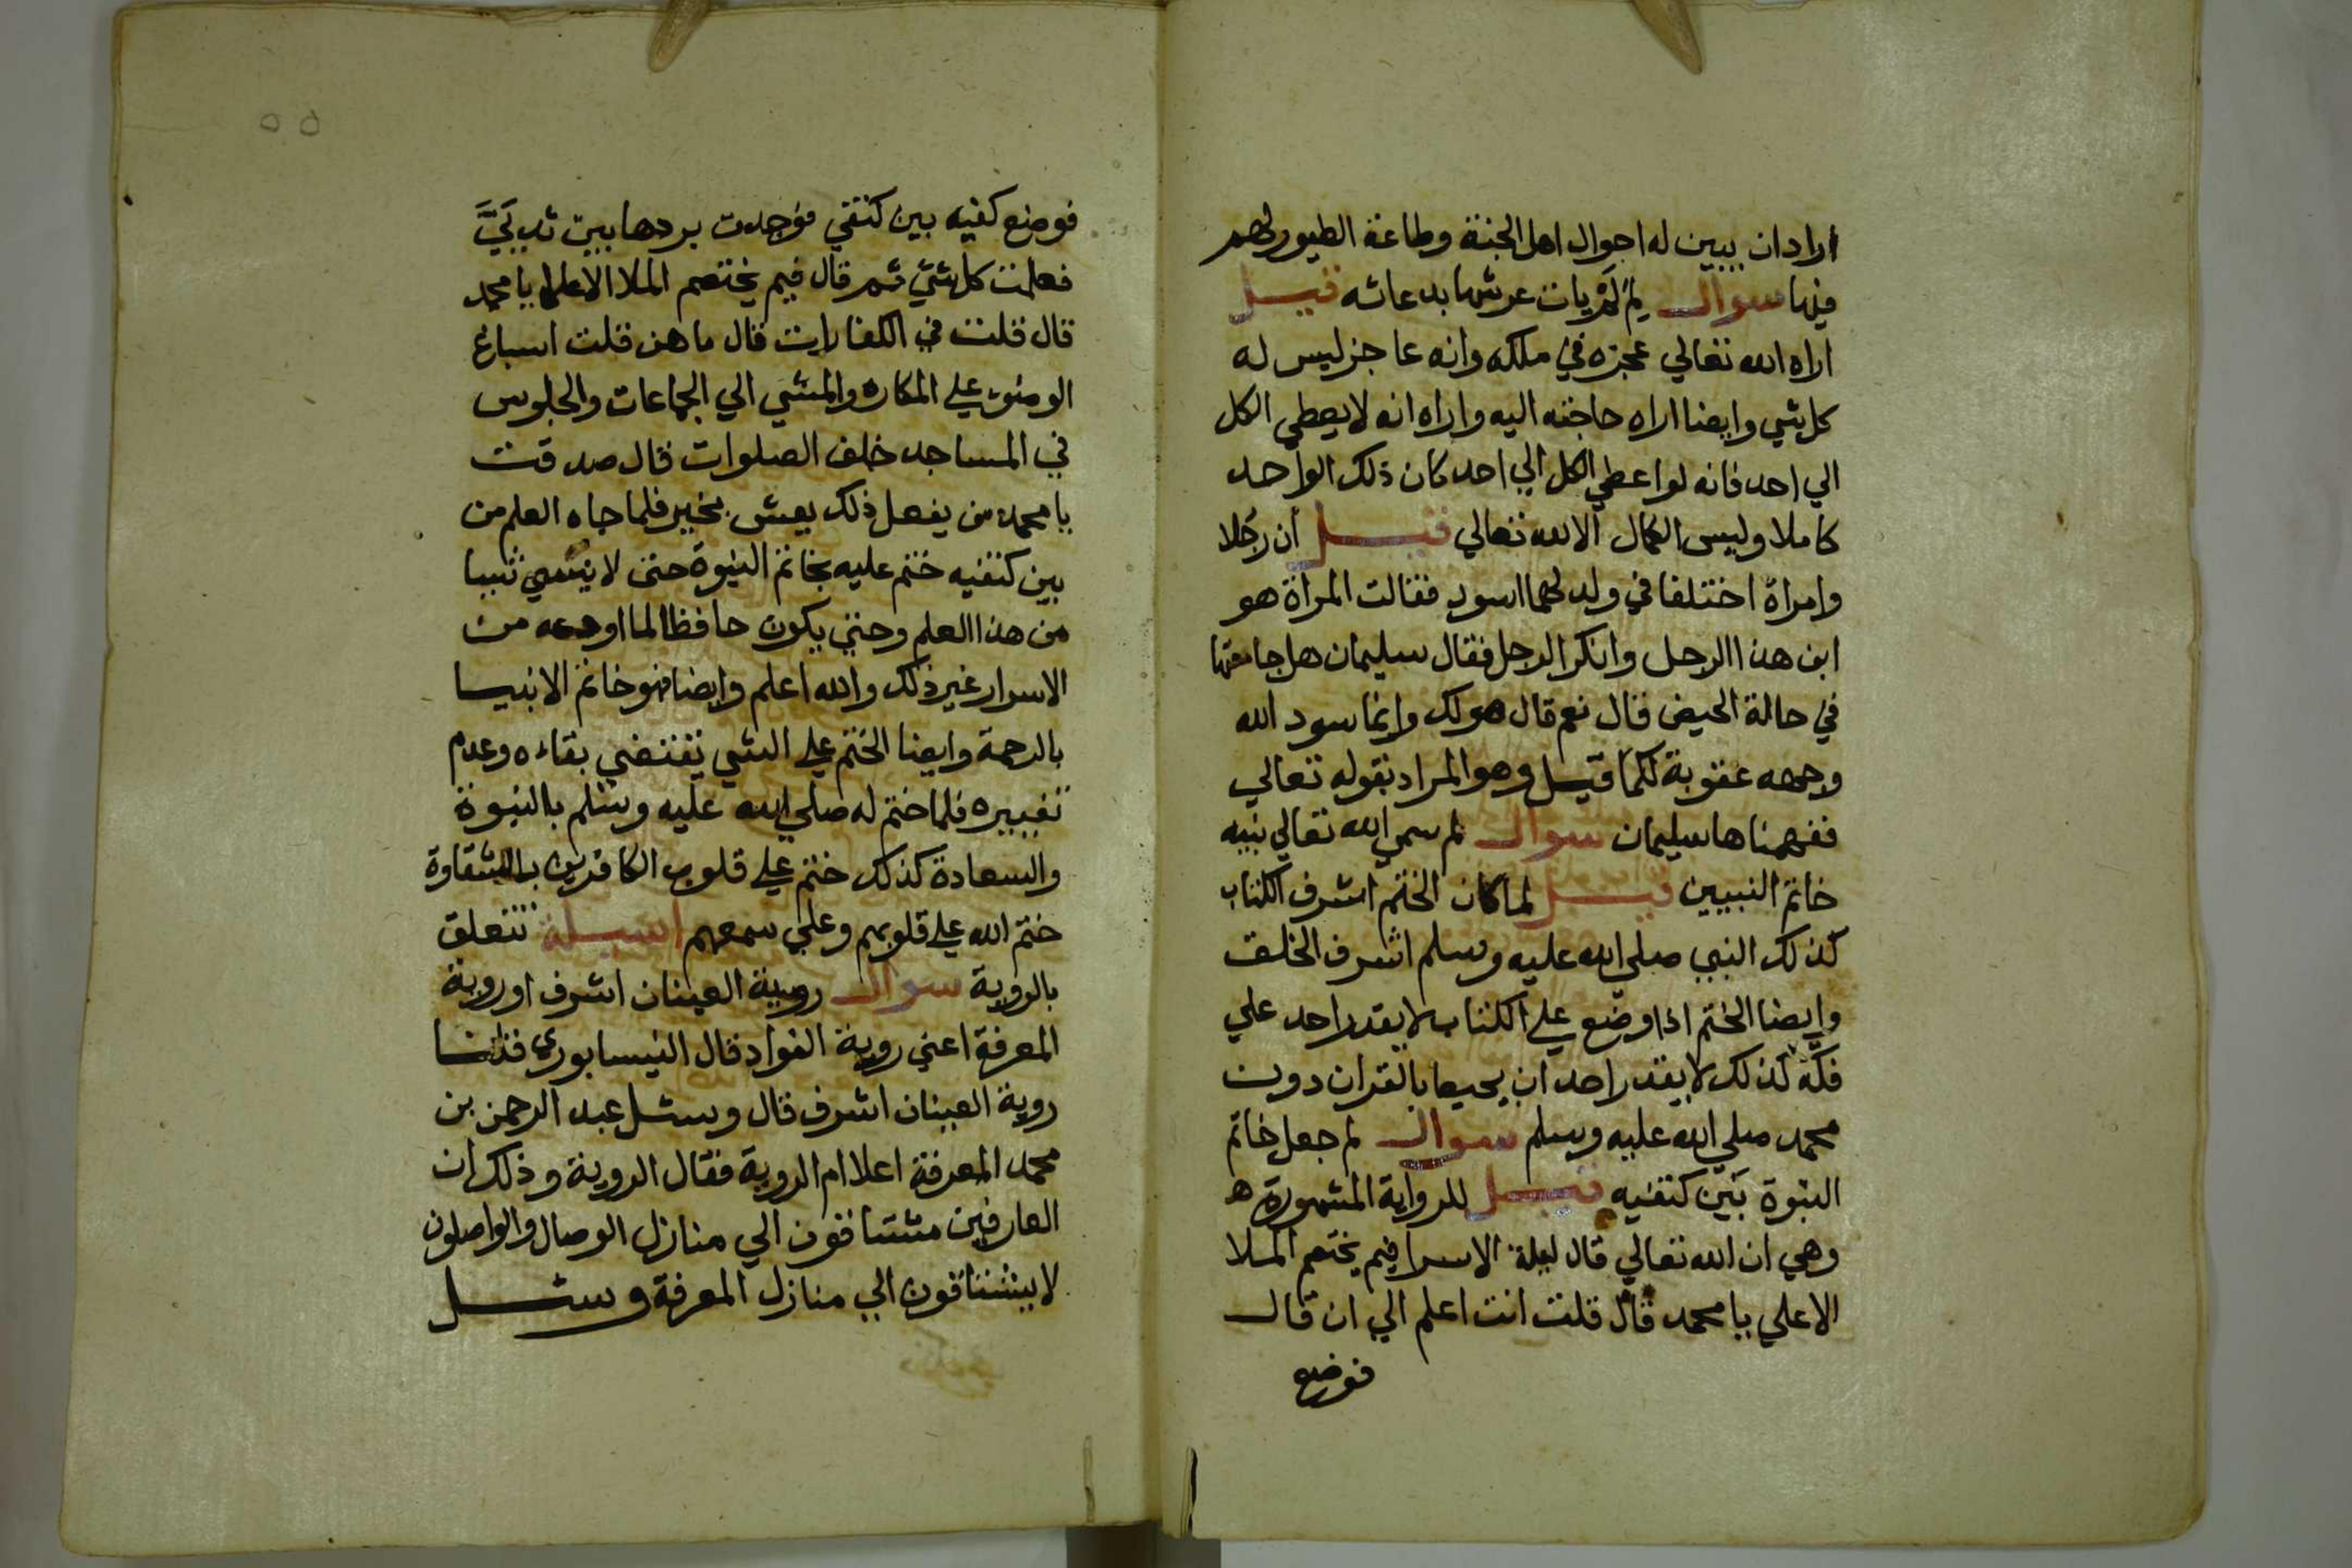 اراد ان يبين له احوال اهل الجنة وطاعة الطيور لهم
فيها سوال لِمَ لَمْ يات عرشها بدعائه قيل
اراه الله تعالي عجزه في ملكه وانه عاجز ليس له
كل شي وايضا اراه حاجته اليه واراه انه لا يعطي الكل
الي احد فانه لو اعطي الكل الي احد كان ذلك الواحد
كاملا وليس الكمال الا لله تعالي قيل أن رجُلا
وامراة اختلفا في ولد لهما اسود فقالت المراة هو
ابن هذا الرجل وانكر الرجل فقال سليمان هل جامعتها
في حالة الحيض قال نعم قال هو لك وانما سود الله
وجهه عقوبة لكما قيل وهو المراد بقوله تعالي
ففهمناها سليمان سوال لم سمي الله تعالي نبيه
خاتم النبيين قيل لما كان الختم اشرف الكتاب
كذلك النبي صلي الله عليه وسلم اشرف الخلق
وايضا الختم اذا وضع علي الكتاب لا يقدر احد علي
فكّه كذلك لا يقدر احد ان يحيط بالقران دون
محمد صلي الله عليه وسلم سوال لم جعل خاتم
النبوة بَين كتفيه قيل للرواية المشهورة ه
وهي ان الله تعالي قال ليلة الاسرا فيم يختصم الملا
الاعلي يا محمد قال قلت انت اعلم الي ان قال
فوضع
٥٥
فوضع كفيه بين كتفي فوجدت بردها بين ثدييَّ
فعلمت كل شي ثم قال فيم يختصم الملا الاعلي يا محمد
قال قلت في الكفارات قال ما هن قلت اسباغ
الوضوء علي المكاره والمشي الي الجماعات والجلوس
في المساجد خلف الصلوات قال صدقت
يا محمد من يفعل ذلك يعش بخير فلما جاه العلم من
بين كتفيه ختم عليه بخاتم النبوة حتي لا ينسي شيا
من هذا العلم وحتي يكون حافظا لما اودعه من
الاسرار غير ذلك والله اعلم وايضا فهو خاتم الانبيا
بالرحمة وايضا الختم علي الشي يقتضي بقاءه وعدم
تغييره فلما ختم له صلي الله عليه وسلم بالنبوة
والسعادة كذلك ختم علي قلوب الكافرين بالشقاوة
ختم الله علي قلوبهم وعلي سمعهم اسيلة تتعلق
بالروية سوال روية العينان اشرف او روية
المعرفة اعني روية الفواد قال النيسابوري قلنا
روية العينان اشرف قال وسئل عبد الرحمن بن
محمد المعرفة اعلا ام الروية فقال الروية وذلك ان
العارفين مشتاقون الي منازل الوصال والواصلون
لا يشتاقون الي منازل المعرفة وسئل